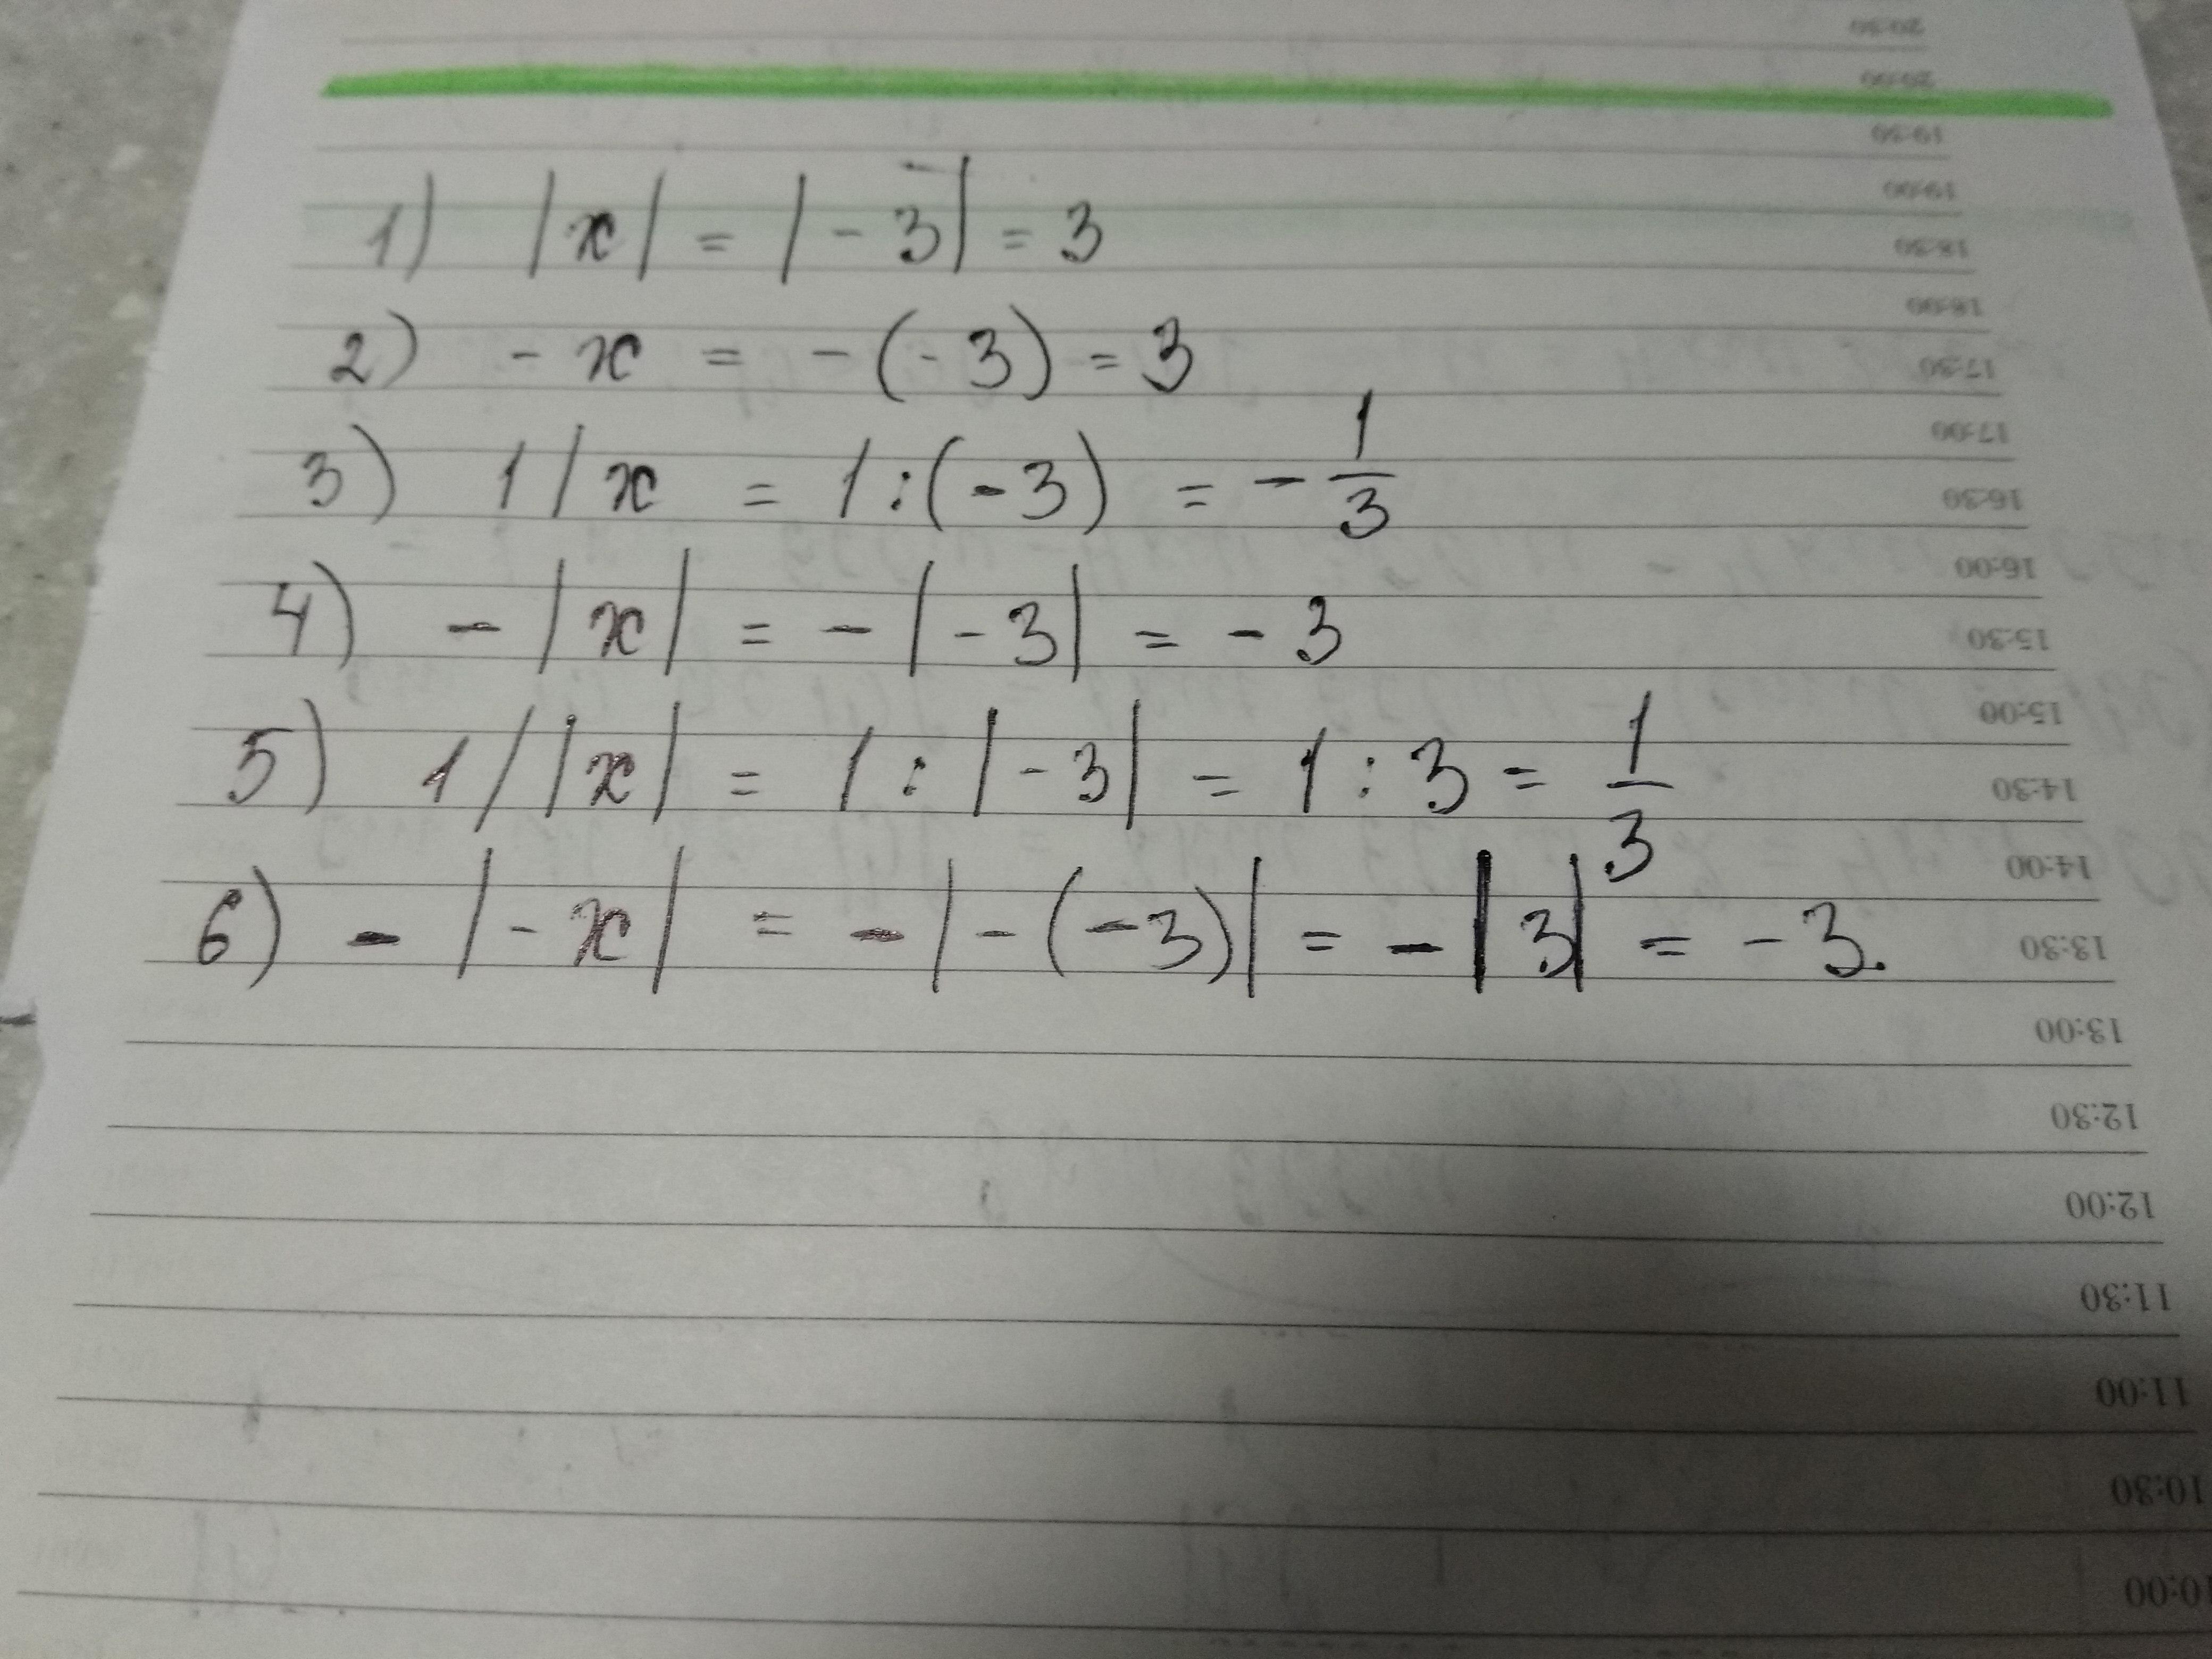 20:30
20:00
19:30
19:00
1) |x| = |-3| = 3
18:30
18:00
2) -x = -(-3) = 3
17:30
17:00
3) 1/x = 1:(-3) = -1/3
16:30
16:00
4) -|x| = -|-3| = -3
15:30
15:00
5) 1/|x| = 1:|-3| = 1:3 = 1/3
14:30
14:00
6) -|-x| = -|-(-3)| = -|3| = -3.
13:30
13:00
12:30
12:00
11:30
11:00
10:30
10:00